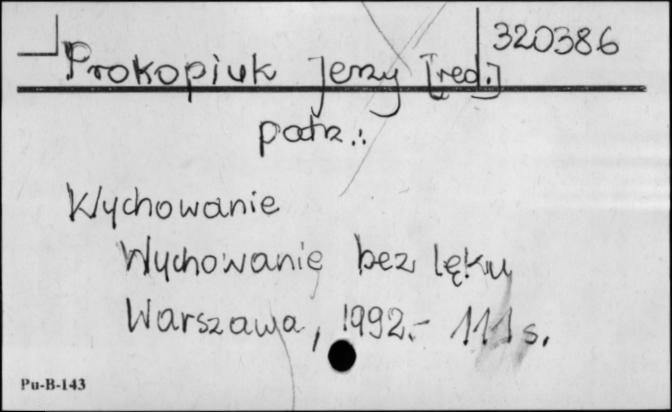 320386
Prokopiuk Jerzy [red.]
patrz.:
Wychowanie
Wychowanie bez lęku
Warszawa, 1992.- 111 s.
Pu-B-143